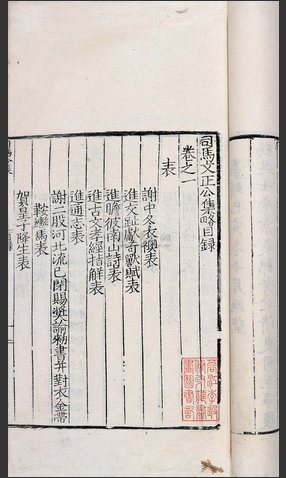 司馬文正公集略目録
卷之一
表
謝中冬衣襖表
進交趾獻奇獸賦表
進瞻彼南山詩表
進古文孝經指解表
進通志表
謝二股河北流已閉賜奬諭勅書并對衣金帶
鞍轡馬表
賀皇子降生表